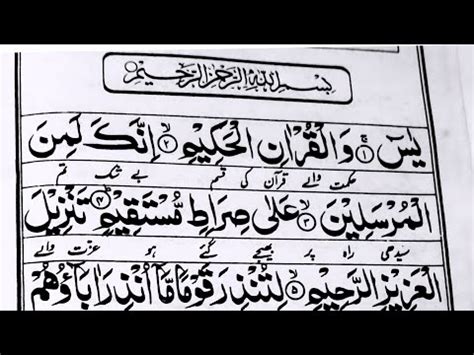 بِسْمِ اللّٰهِ الرَّحْمٰنِ الرَّحِيْمِ
يٰسٓ ۚ﴿۱﴾ وَالْقُرْاٰنِ الْحَكِيْمِ ۙ﴿۲﴾ اِنَّكَ لَمِنَ
حکمت والے قرآن کی قسم بے شک تم
الْمُرْسَلِيْنَ ۙ﴿۳﴾ عَلٰى صِرَاطٍ مُّسْتَقِيْمٍ ؕ﴿۴﴾ تَنْزِيْلَ
سیدھی راہ پر بھیجے گئے ہو عزت والے
الْعَزِيْزِ الرَّحِيْمِ ۙ﴿۵﴾ لِتُنْذِرَ قَوْمًا مَّاۤ اُنْذِرَ اٰبَآؤُهُمْ